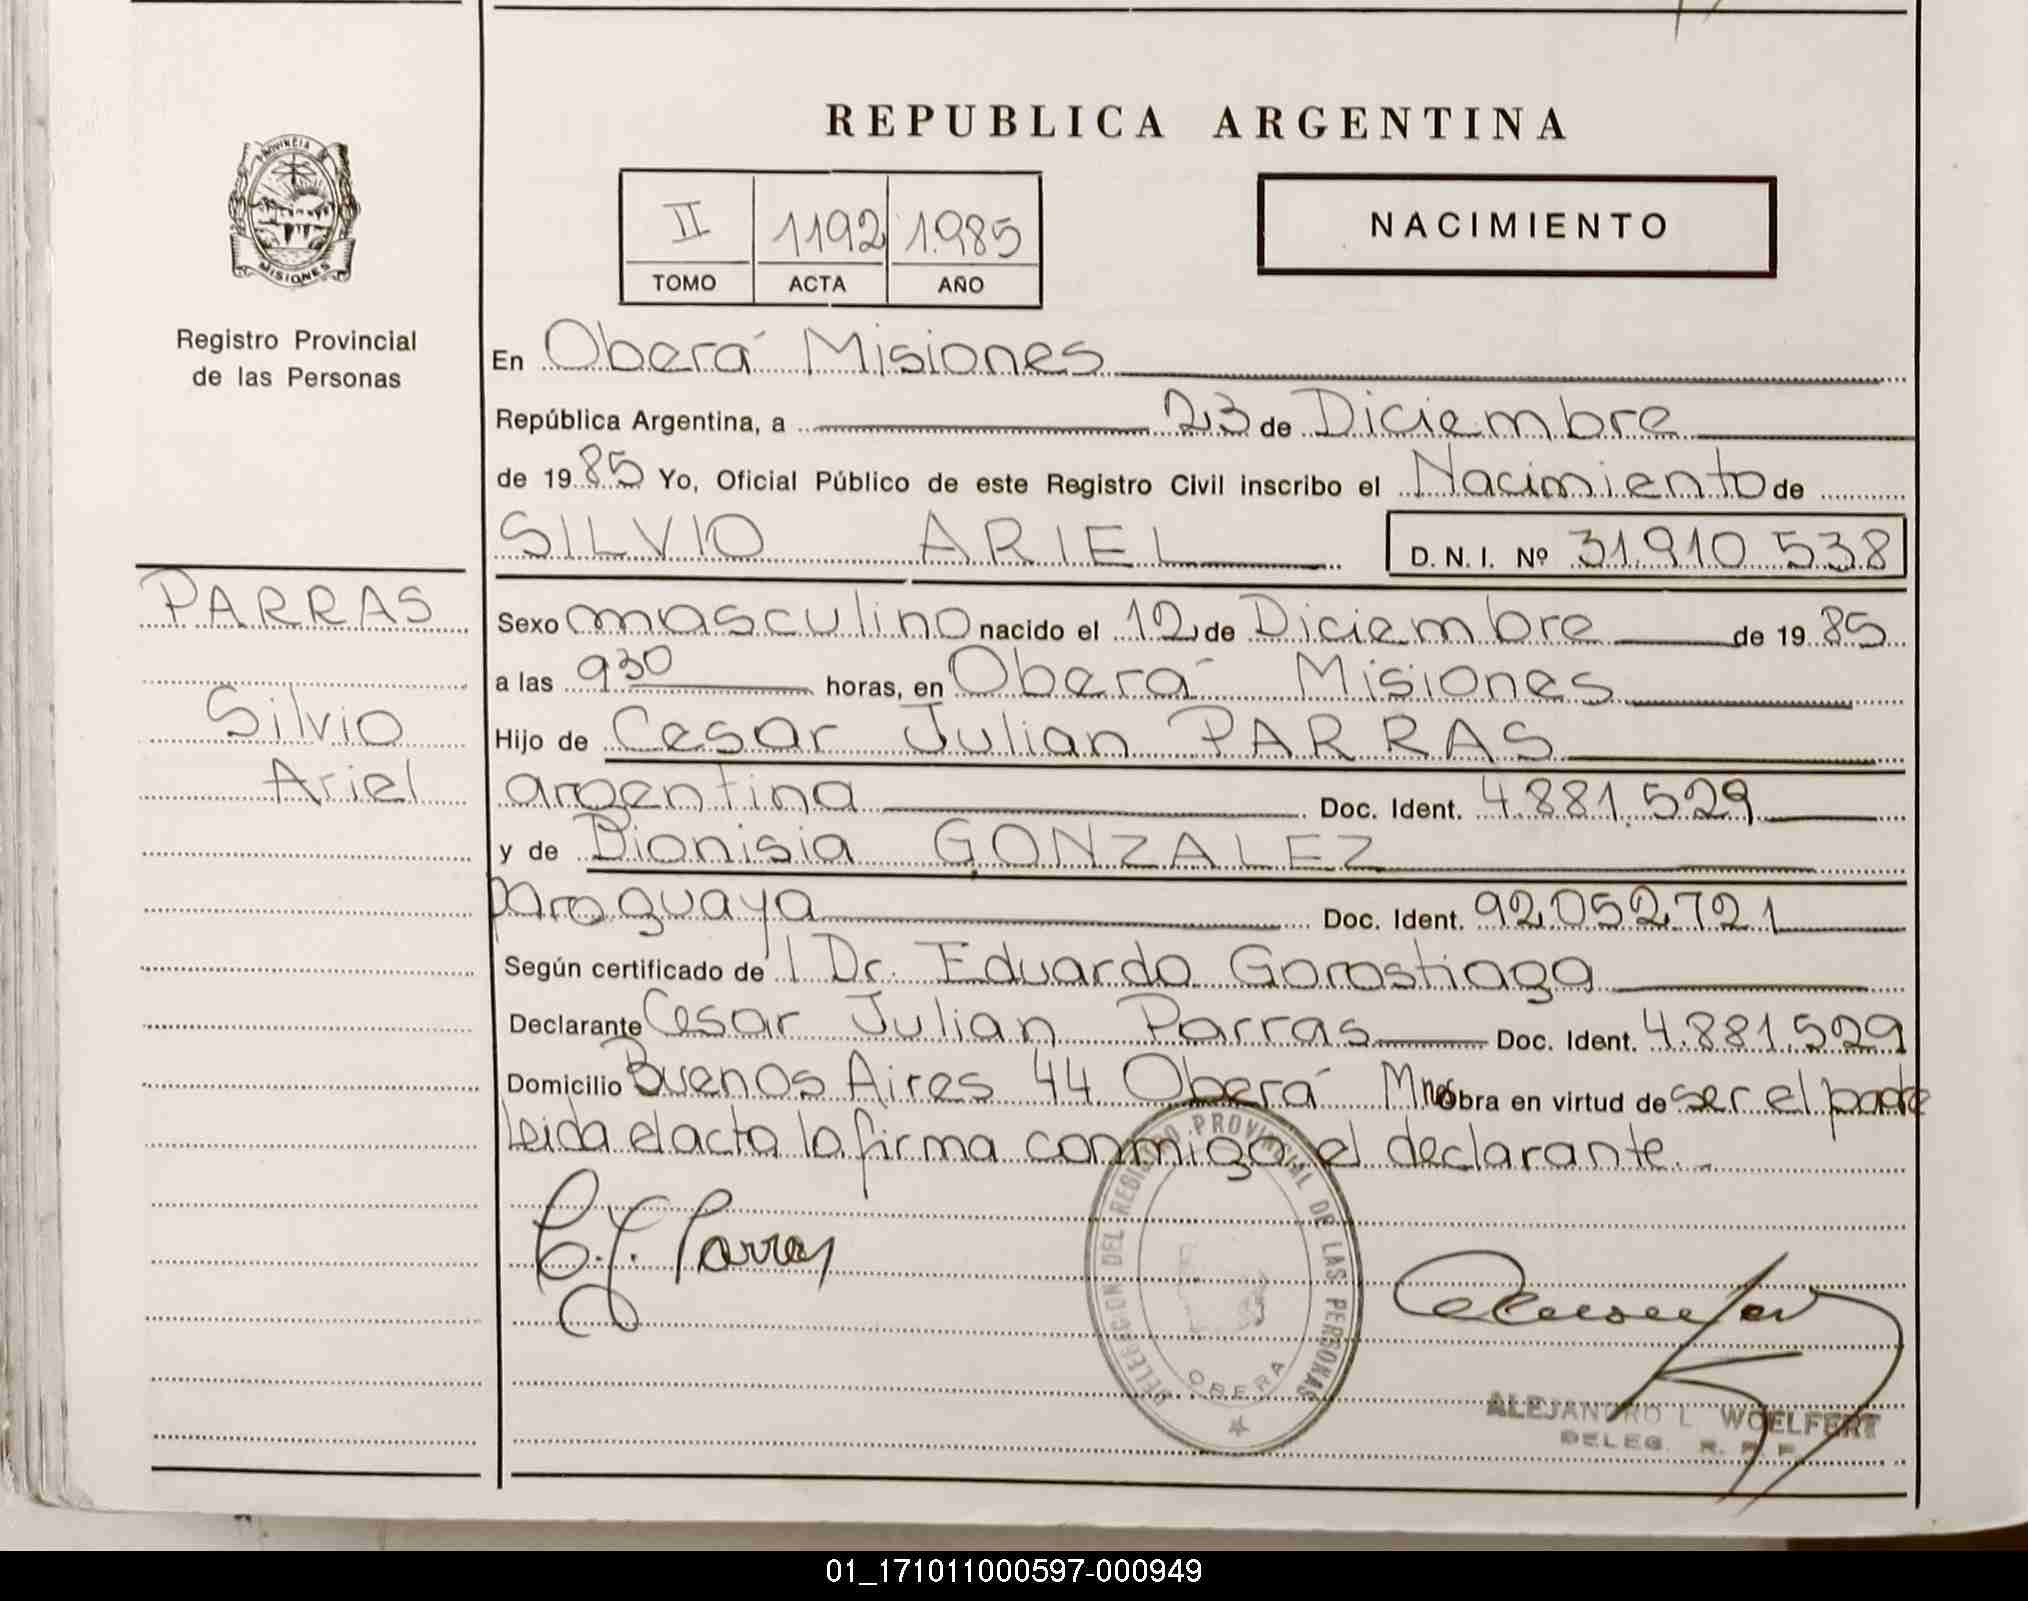 REPUBLICA ARGENTINA
PROVINCIA
MISIONES
Registro Provincial
de las Personas
II 1192 1985
TOMO ACTA AÑO
NACIMIENTO
En Oberá Misiones
República Argentina, a 23 de Diciembre
de 1985 Yo, Oficial Público de este Registro Civil inscribo el Nacimiento de
SILVIO ARIEL D. N. I. Nº 31.910.538
PARRAS
Silvio
Ariel
Sexo masculino nacido el 12 de Diciembre de 1985
a las 930 horas, en Oberá Misiones
Hijo de Cesar Julian PARRAS
argentina Doc. Ident. 4.881.529
y de Dionisia GONZALEZ
paraguaya Doc. Ident. 92.052.721
Según certificado del Dr. Eduardo Gorostiaga
Declarante Cesar Julian Parras Doc. Ident. 4.881.529
Domicilio Buenos Aires 44 Oberá Mnes Obra en virtud de ser el padre
leida el acta la firma conmigo el declarante.
C. J. Parras
DELEGACION DEL REGISTRO PROVINCIAL DE LAS PERSONAS
OBERA
ALEJANDRO L WOELFERT
DELEG. R. P. P.
01_171011000597-000949